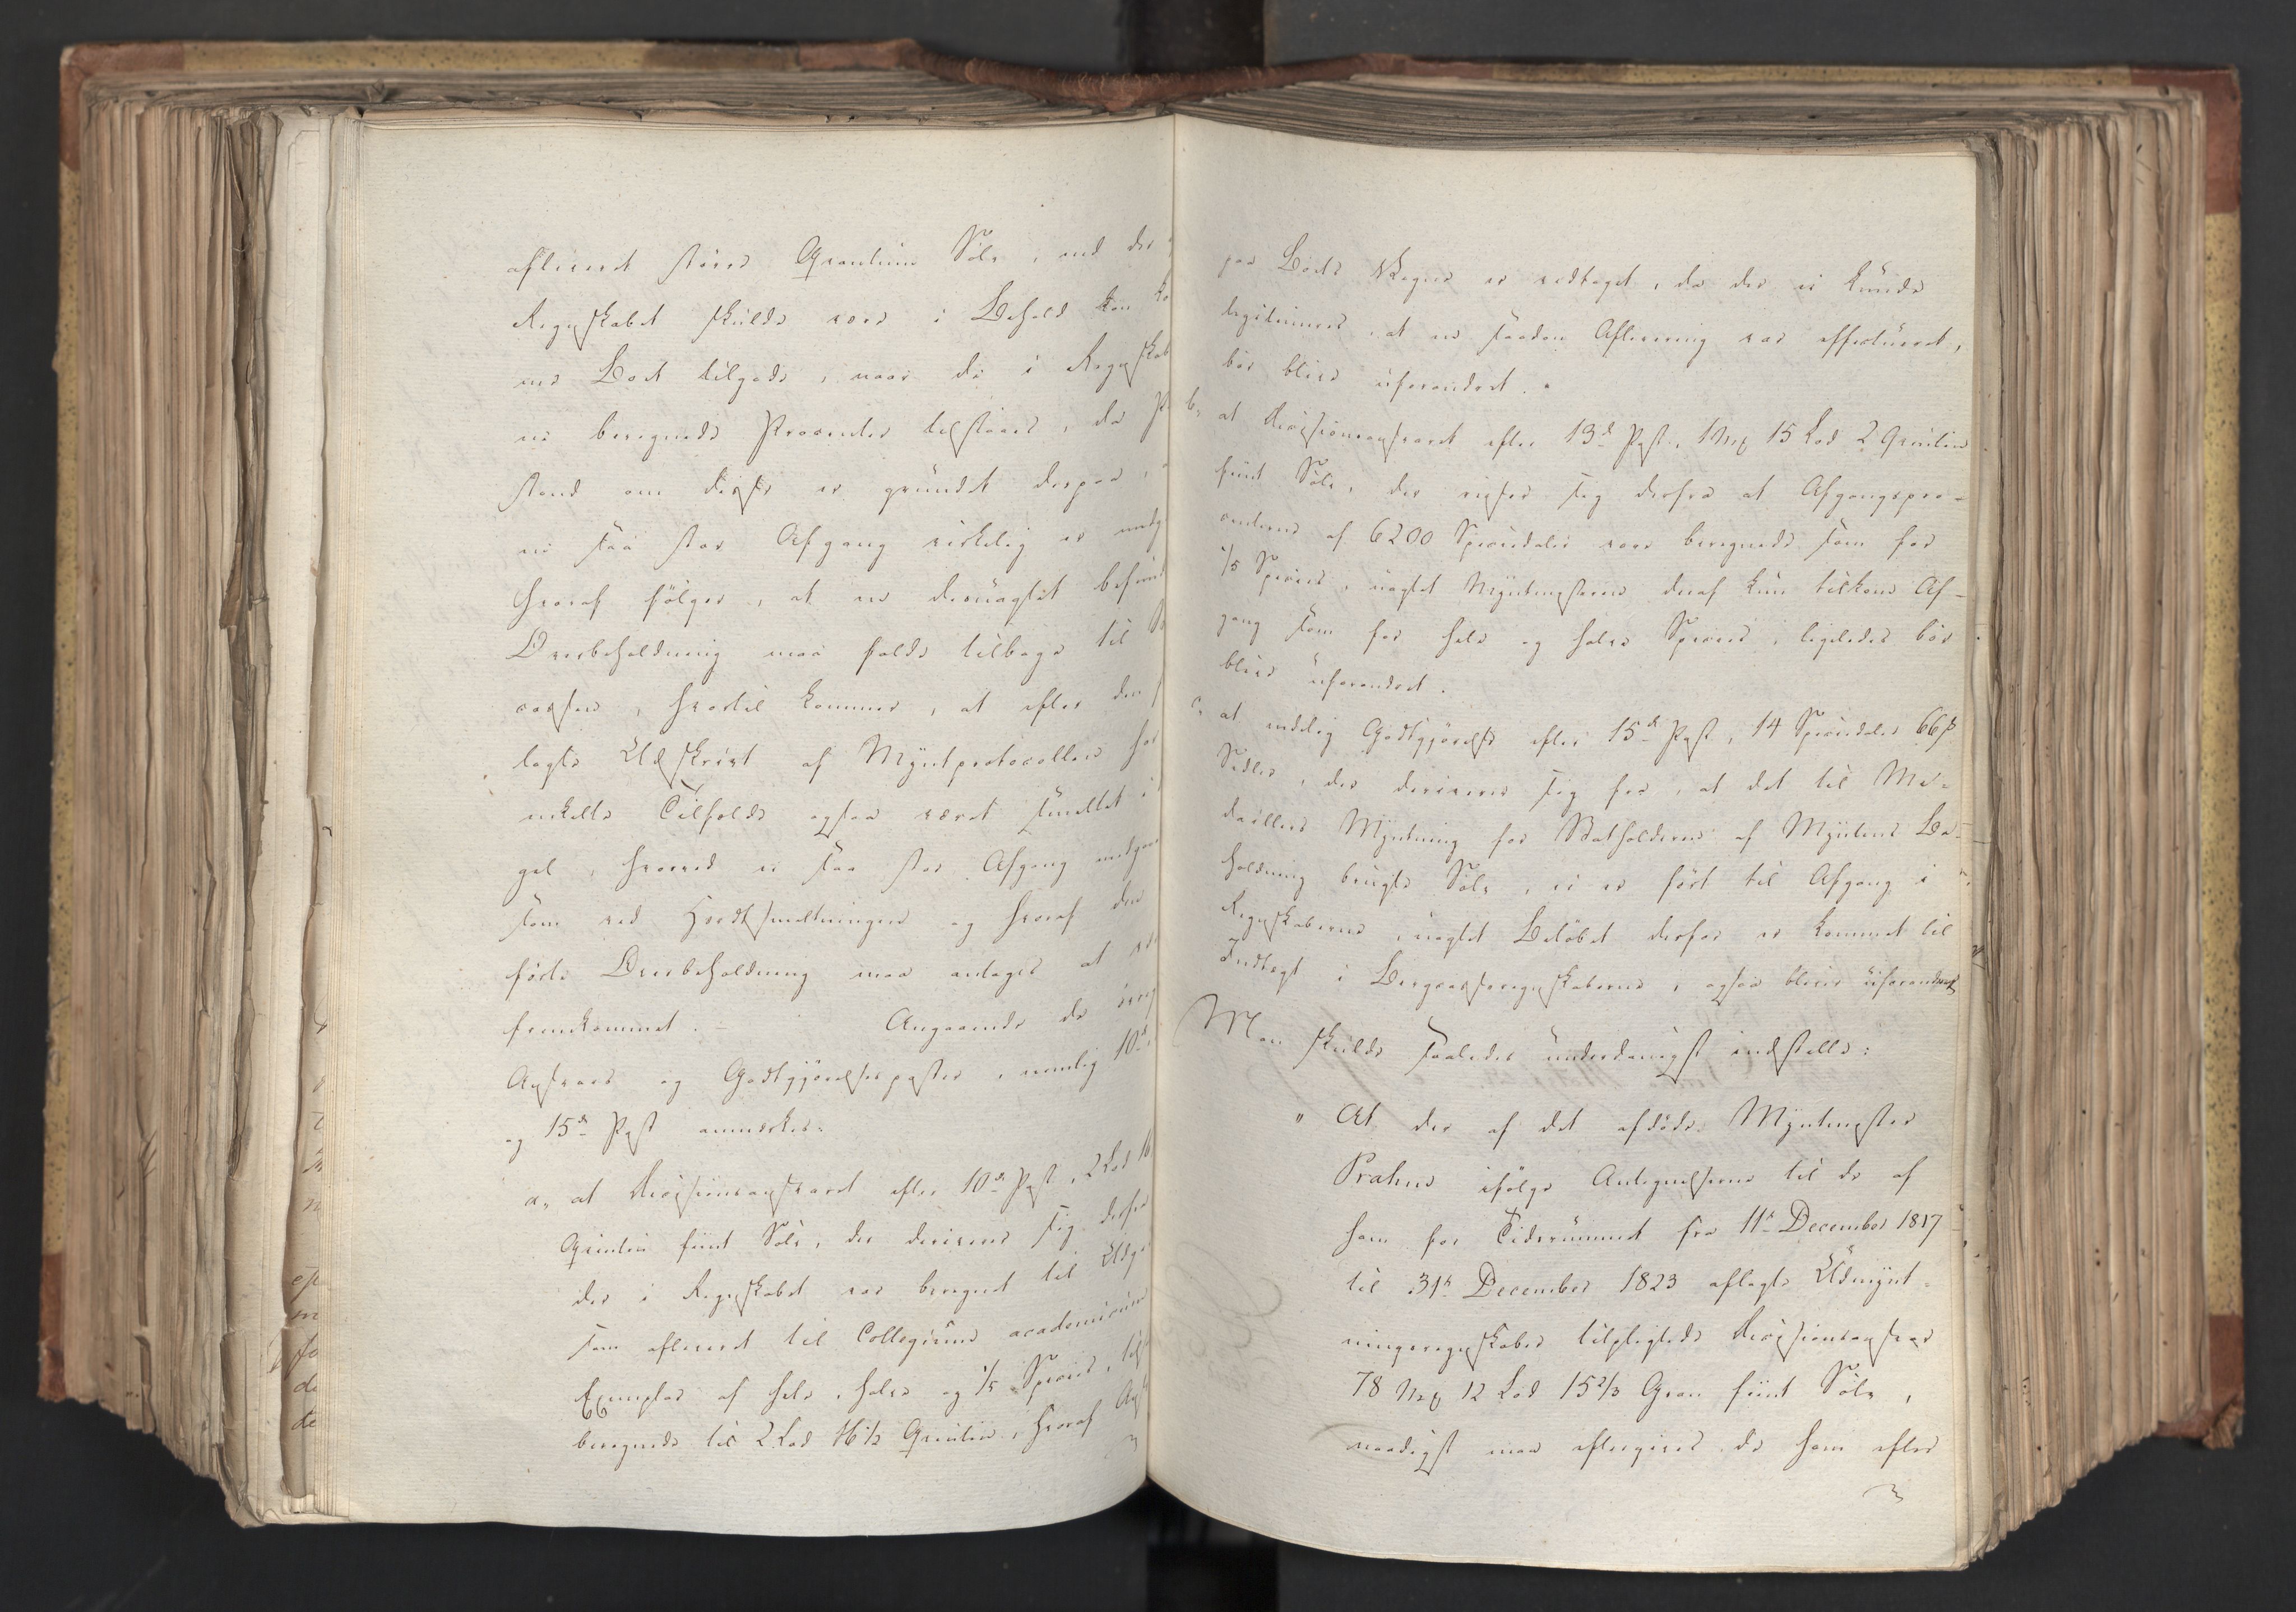 afleveret större Qvantum Sölv, end der
Regnskabet skulde være i Behold kan
ens Boet tilgode, naar de i Regnskab
ne beregnede Procenter tilstaaes, da
stand om disse er grundet derpaa,
en saa stor Afgang virkelig er medg
hvoraf fölger, at en desuagtet befund
Overbeholdning maa falde tilbage til
cassen, hvortil kommer, at efter den
lagte Udskrivt af Myntprotocollen har
enkelte Tilfælde ogsaa været smeltet i
gel, hvorved ei saa stor Afgang medgaaer
som ved Herdsmeltningen og hvoraf den
förte Overbeholdning maa antages at
fremkommet. - Angaaende de övrig
Ansvars og Godtgjörelsesposter, nemlig 10de
og 15de Post anmærkes:
a, at Revisionsansvaret efter 10de Post, 2 Lod 16
Qvintin fiint Sölv, der deriverer sig derfra
der i Regnskabet var beregnet til Udgi
som afleveret til Collegium academicum
Exemplar af hele, halve og 1/5 Species,
beregnede til 2 Lod 16 1/2 Qvintin, hvoraf
paa Boets Vegne er vedtaget, da der ei kunde
legitimeres, at en saadan Aflevering var effectueret,
bör blive uforandret.
b, at Revisionsansvaret efter 13de Post, 1 Mk 15 Lod 2 Qvintin
fiint Sölv, der reiser sig derfra at Afgangspro-
centerne af 6200 Speciedaler vare beregnede som for
1/5 Species, uagtet Myntmesteren deraf kun tilkom Af-
gang som for hele og halve Species, ligeledes bör
blive uforandret.
c, at endelig Godtgjörelse efter 15de Post, 14 Speciedaler 66 ß
Sedler, der deriverer sig fra, at det til Me-
daillers Myntning for Statholderen af Myntens Be-
holdning brugte Sölv, ei er fört til Afgang i
Regnskaberne, uagtet Belöbet derfor er kommet til
Indtægt i Bergcasseregnskaberne, ogsaa bliver uforandret.
Man skulde saaledes underdanigst indstille:
" At der af det afdöde Myntmester
Prahns ifölge Antegnelserne til de af
ham for Tidsrummet fra 11te December 1817
til 31te December 1823 aflagte Udmynt-
ningsregnskaber tilpligtede Revisionsansvar
78 Mk 12 Lod 15 2/3 Gran fiint Sölv,
naadigst maa eftergives de ham efter